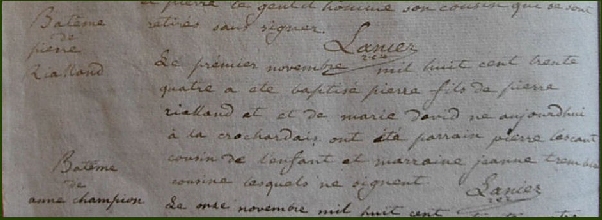 et pierre le gentilhomme son cousin qui se sont
retirés sans signer.
Lancer
rec
Batême
de
pierre
Rialland
Le premier novembre mil huit cent trente
quatre a ete baptise pierre fils de pierre
rialland et et de marie david ne aujourdhui
à la crochardais ont été parrain pierre
cousin de l'enfant et marraine jeanne
cousine lesquels ne signent
Lancer
rec
Batême
de
anne champion
Le onze novembre mil huit cent